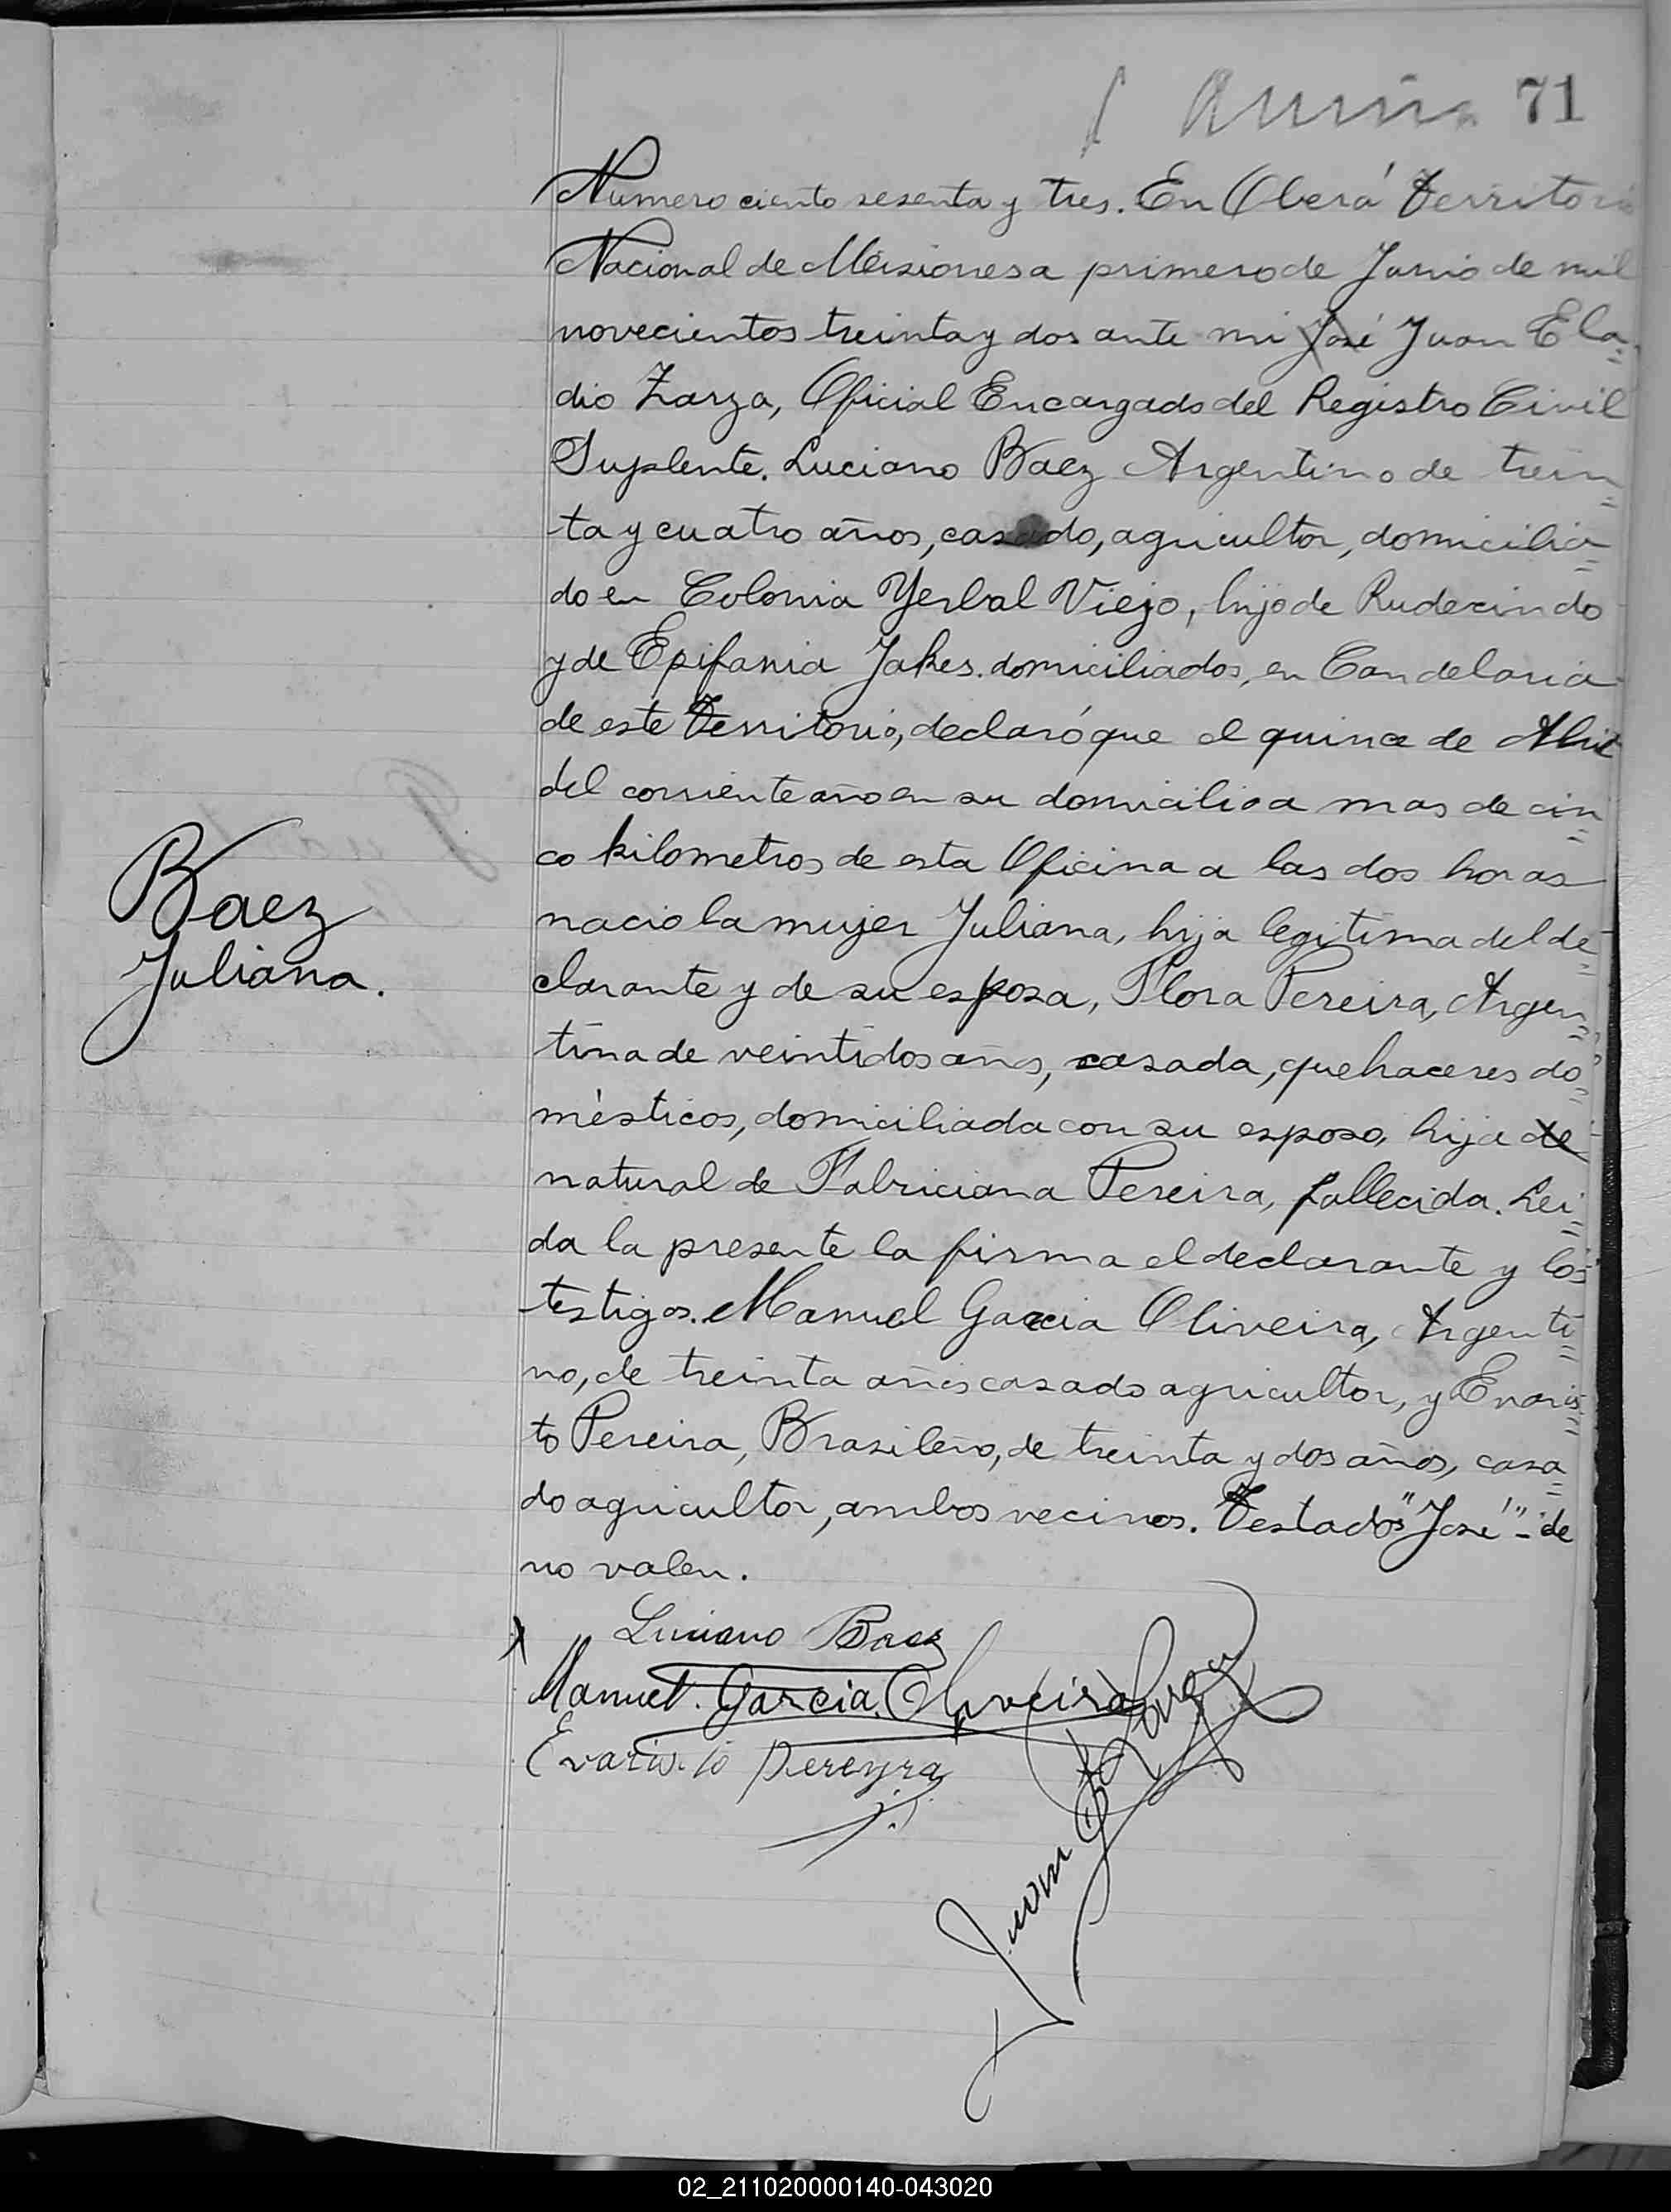 71
Numero ciento sesenta y tres. En Oberá Territorio
Nacional de Misiones a primero de Junio de mil
novecientos treinta y dos ante mi José Juan Ela=
dio Zarza, Oficial Encargado del Registro Civil
Suplente. Luciano Baez Argentino de trein=
ta y cuatro años, casado, agricultor, domicilia=
do en Colonia Yerbal Viejo, hijo de Rudecindo
y de Epifania Jakes. domiciliados, en Candelaria
de este Territorio, declaró que el quince de Abril
del corriente año en su domicilio a mas de cin=
co kilometros de esta Oficina a las dos horas
nacio la mujer Juliana, hija legitima del de=
clarante y de su esposa, Flora Pereira, Argen=
tina de veintidos años, casada, quehaceres do=
mésticos, domiciliada con su esposo, hija de
natural de Fabriciana Pereira, fallecida. Lei=
da la presente la firma el declarante y los
testigos. Manuel Garcia Oliveira, Argenti=
no, de treinta años casado agricultor, y Evaris=
to Pereira, Brasileño, de treinta y dos años, casa=
do agricultor, ambos vecinos. Testados "José" - de
no valen.
Baez
Juliana.
Luciano Baez
Manuel. Garcia. Oliveira
Evaristo Pereyra
Juan E Zarza
02_211020000140-043020